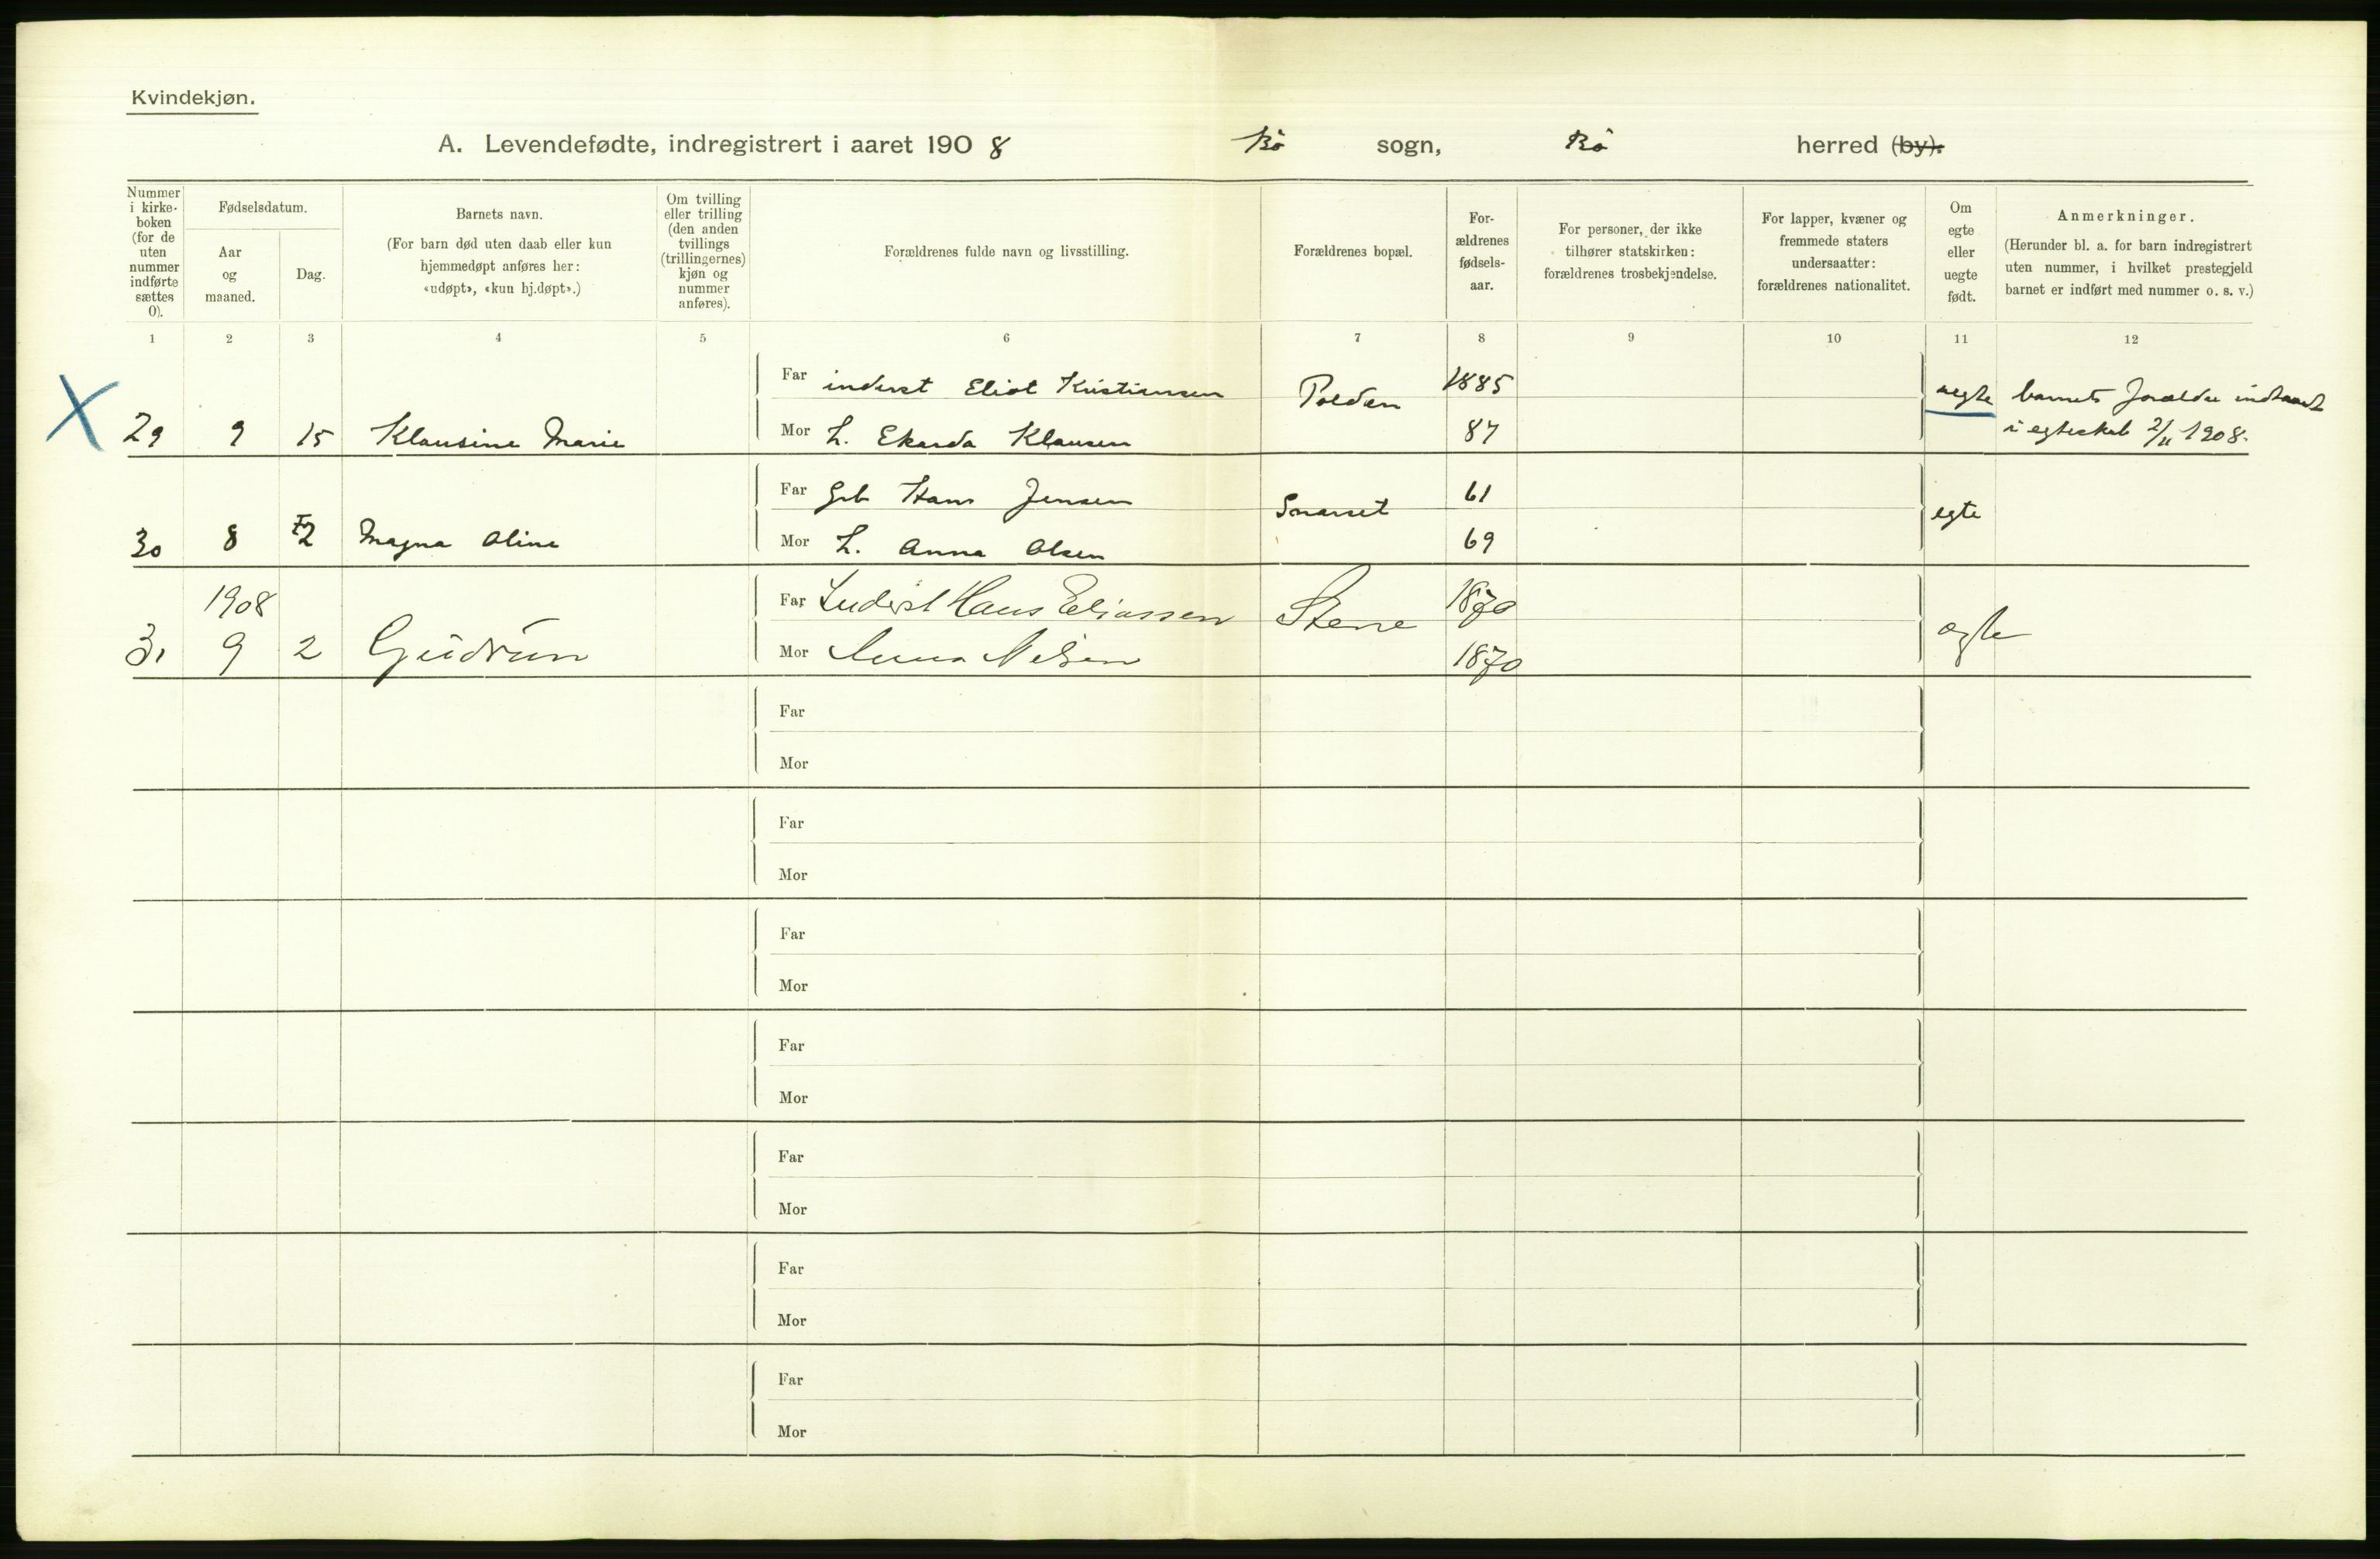 Kvindekjøn.
A. Levendefødte, indregistrert i aaret 1908 Bø sogn, Bø herred (by).
Nummer i kirke-boken (for de uten nummer indførte sættes 0).
Fødselsdatum.
Aar og maaned.
Dag.
Barnets navn.
(For barn død uten daab eller kun hjemmedøpt anføres her: «udøpt», «kun hj.døpt».)
Om tvilling eller trilling (den anden tvillings (trillingernes) kjøn og nummer anføres).
Forældrenes fulde navn og livsstilling.
Forældrenes bopæl.
For-ældrenes fødsels-aar.
For personer, der ikke tilhører statskirken: forældrenes trosbekjendelse.
For lapper, kvæner og fremmede staters undersaatter: forældrenes nationalitet.
Om egte eller uegte født.
Anmerkninger.
(Herunder bl. a. for barn indregistrert uten nummer, i hvilket prestegjeld barnet er indført med nummer o. s. v.)
1 2 3 4 5 6 7 8 9 10 11 12
X 29 9 15 Klausine Marie
Far inderst Eliot Kristiansen Polden 1885 uegte
Mor L. Ekarda Klausen 87
barnets forældre indtraadt
i egteskab 2/11 1908.
30 8 2 Magna Oline
Far Grb Hans Jensen 61 egte
Mor L. Anna Olsen 69
1908
31 9 2 Gudrun
Far Inderst Hans Eliassen Stene 1870 ægte
Mor Anna Nilsen 1870
Far
Mor
Far
Mor
Far
Mor
Far
Mor
Far
Mor
Far
Mor
Far
Mor